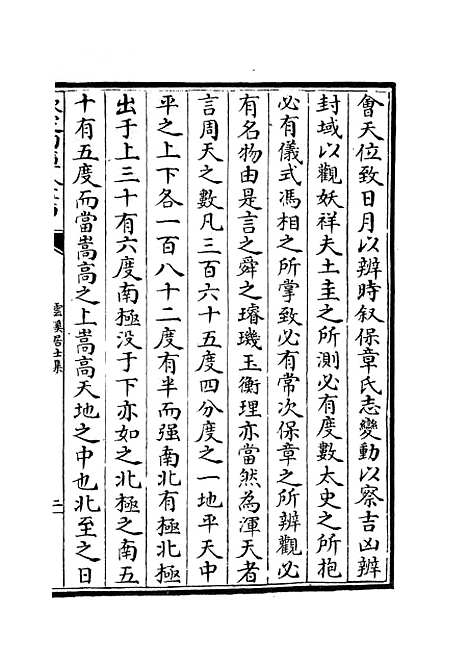 會天位致日月以辨時叙保章氏志變動以察吉凶辨
封域以觀妖祥夫土圭之所測必有度數太史之所抱
必有儀式馮相之所掌致必有常次保章之所辨觀必
有名物由是言之舜之璿璣玉衡理亦當然為渾天者
言周天之數凡三百六十五度四分度之一地平天中
平之上下各一百八十二度有半而强南北有極北極
出于上三十有六度南極没于下亦如之北極之南五
十有五度而當嵩高之上嵩高天地之中也北至之日
雲溪居士集
二